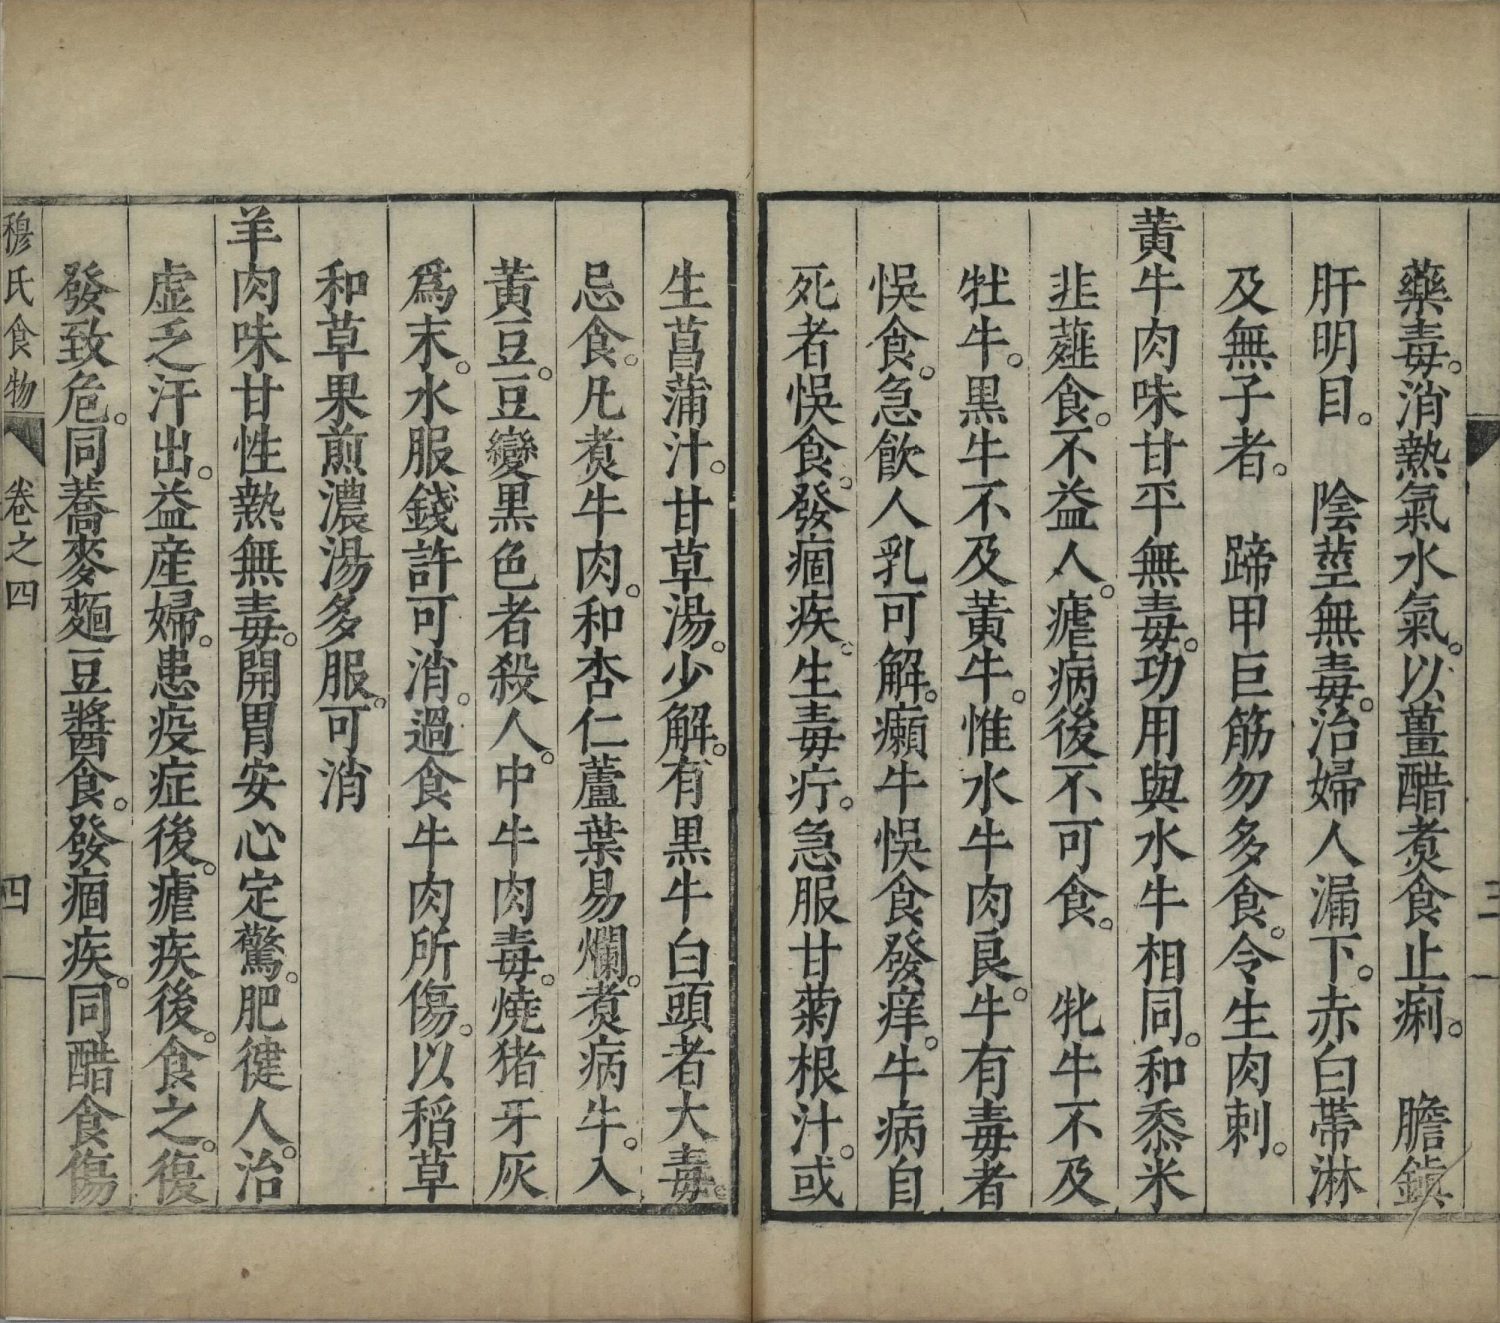 藥毒。消熱氣水氣。以薑醋煮食止痢。　膽鎮
肝明目。　陰莖無毒。治婦人漏下。赤白帶淋
及無子者。　蹄甲巨筋勿多食。令生肉刺。
黃牛肉味甘平無毒。功用與水牛相同。和黍米
韭薤食。不益人。瘧病後不可食。　牝牛不及
牡牛。黑牛不及黃牛。惟水牛肉良。牛有毒者
悞食。急飲人乳可解。癩牛悞食發痒。牛病自
死者悞食。發痼疾。生毒疔。急服甘菊根汁。或
生菖蒲汁。甘草湯。少解。有黑牛白頭者大毒
忌食。凡煮牛肉。和杏仁蘆葉易爛。煮病牛。入
黃豆。豆變黑色者殺人。中牛肉毒。燒猪牙灰
爲末。水服錢許可消。過食牛肉所傷。以稻草
和草果煎濃湯多服。可消
羊肉味甘性熱無毒。開胃安心定驚。肥健人。治
虛乏汗出。益産婦。患疫症後。瘧疾後。食之。復
發致危。同蕎麥麵豆醬食。發痼疾。同醋食傷
穆氏食物　卷之四　四
三